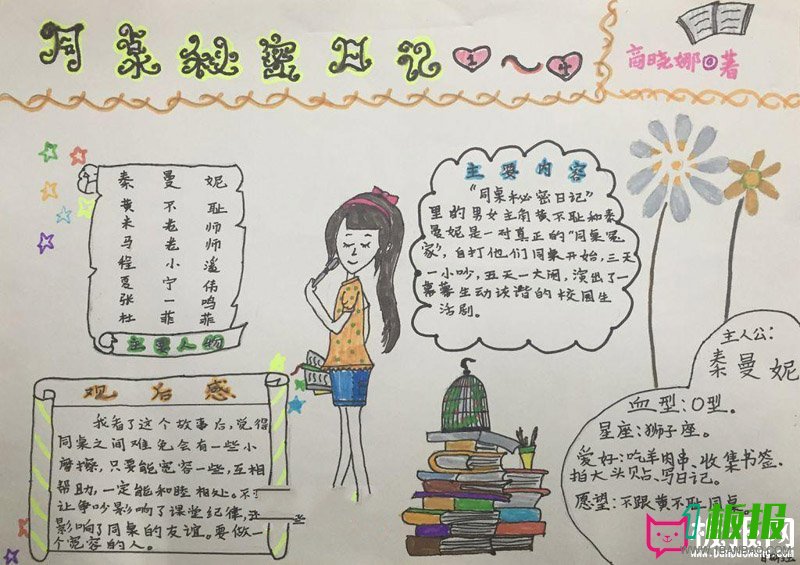 同桌秘密日记1~4
商晓娜◎著
秦曼妮
黄不耻
朱老师
马老师
程小遥
夏宁伟
张一鸣
杜菲菲
主要人物
主要内容
“同桌秘密日记”
里的男女主角黄不耻和秦
曼妮是一对真正的“同桌冤
家”,自打他们同桌开始,三天
一小吵,五天一大闹,演出了一
幕幕生动诙谐的校园生
活剧。
观后感
我看了这个故事后,觉得
同桌之间难免会有一些小
摩擦,只要能宽容一些,互相
帮助,一定能和睦相处。不
让争吵影响了课堂纪律,
影响了同桌的友谊。要做一
个宽容的人。
主人公:
秦曼妮
血型:O型。
星座:狮子座。
爱好:吃羊肉串、收集书签、
拍大头贴、写日记。
愿望:不跟黄不耻同桌。
板报
板报网